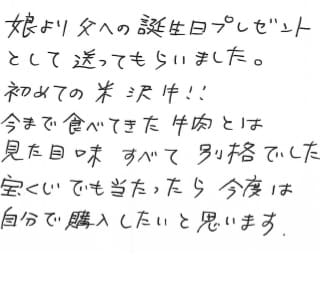 娘より父への誕生日プレゼント
として送ってもらいました。
初めての米沢牛!!
今まで食べてきた牛肉とは
見た目味すべて別格でした
宝くじでも当たったら今度は
自分で購入したいと思います.